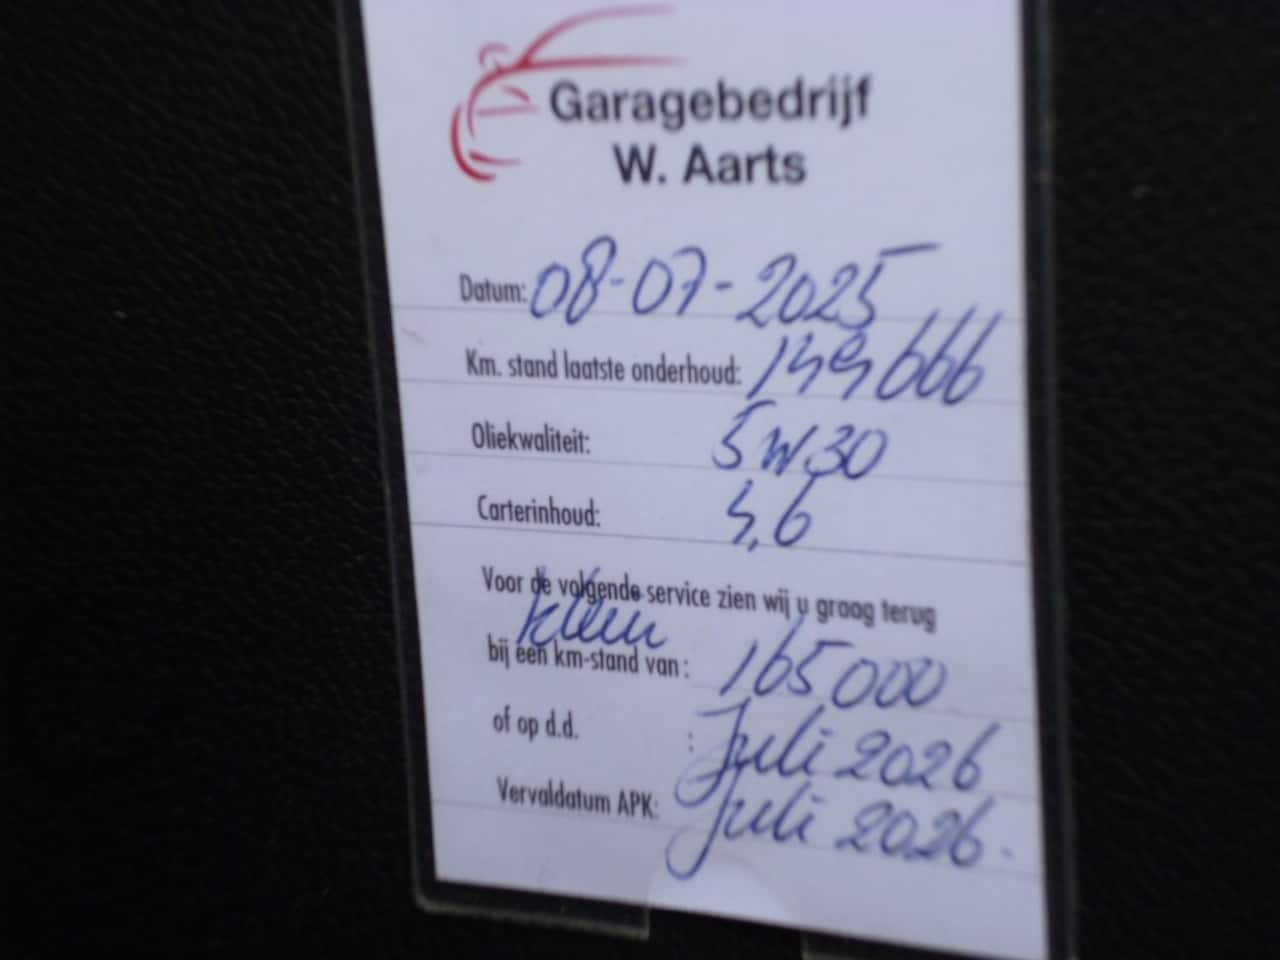 Garagebedrijf
W. Aarts
Datum: 08-07-2025
Km. stand laatste onderhoud: 149666
Oliekwaliteit: 5W30
Carterinhoud: 4,6
Voor de volgende service zien wij u graag terug
klein
bij een km-stand van: 165000
of op d.d. : Juli 2026
Vervaldatum APK: Juli 2026.